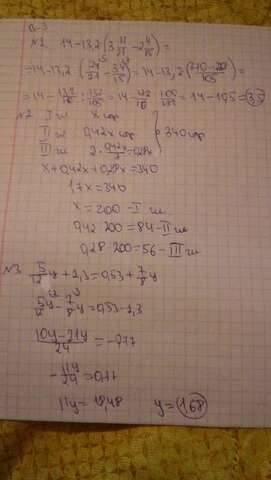 В-3
№1 14-13,2(3 11/21-2 4/15)=
=14-13,2(74/21-34/15)=14-13,2(370-238/105)=
=14-132/10:132/105=14-132/10·105/132=14-10,5=3,5
№2 I x
II 0,42x } 340
III 2·0,42x/3=0,28x
x+0,42x+0,28x=340
1,7x=340
x=200-I
0,42·200=84-II
0,28·200=56-III
№3 5/12y+1,3=0,53+7/8y
5/12y-7/8y=0,53-1,3
10y-21y/24=-0,77
-11y/24=0,77
11y=18,48 y=1,68